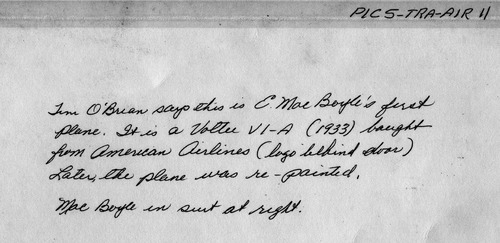 PICS-TRA-AIR 11
Tim O'Brian says this is E. Mac Boyle's first
plane. It is a Voltee V1-A (1933) bought
from American Airlines (logo behind door)
Later, the plane was re-painted.
Mac Boyle in suit at right.